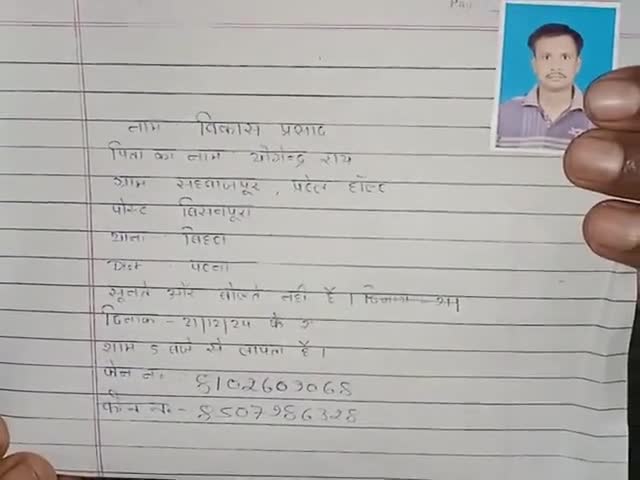 नाम विकास प्रसाद
पिता का नाम योगेन्द्र राय
ग्राम सहवाजपुर, पटेल हॉल्ट
पोस्ट बिसनपुरा
थाना बिहटा
Dist पटना
सुनते और बोलते नहीं है।
दिनांक - 21/12/24 के
शाम 5 बजे से लापता है।
फोन न० 8102609068
फोन न० - 8507986328